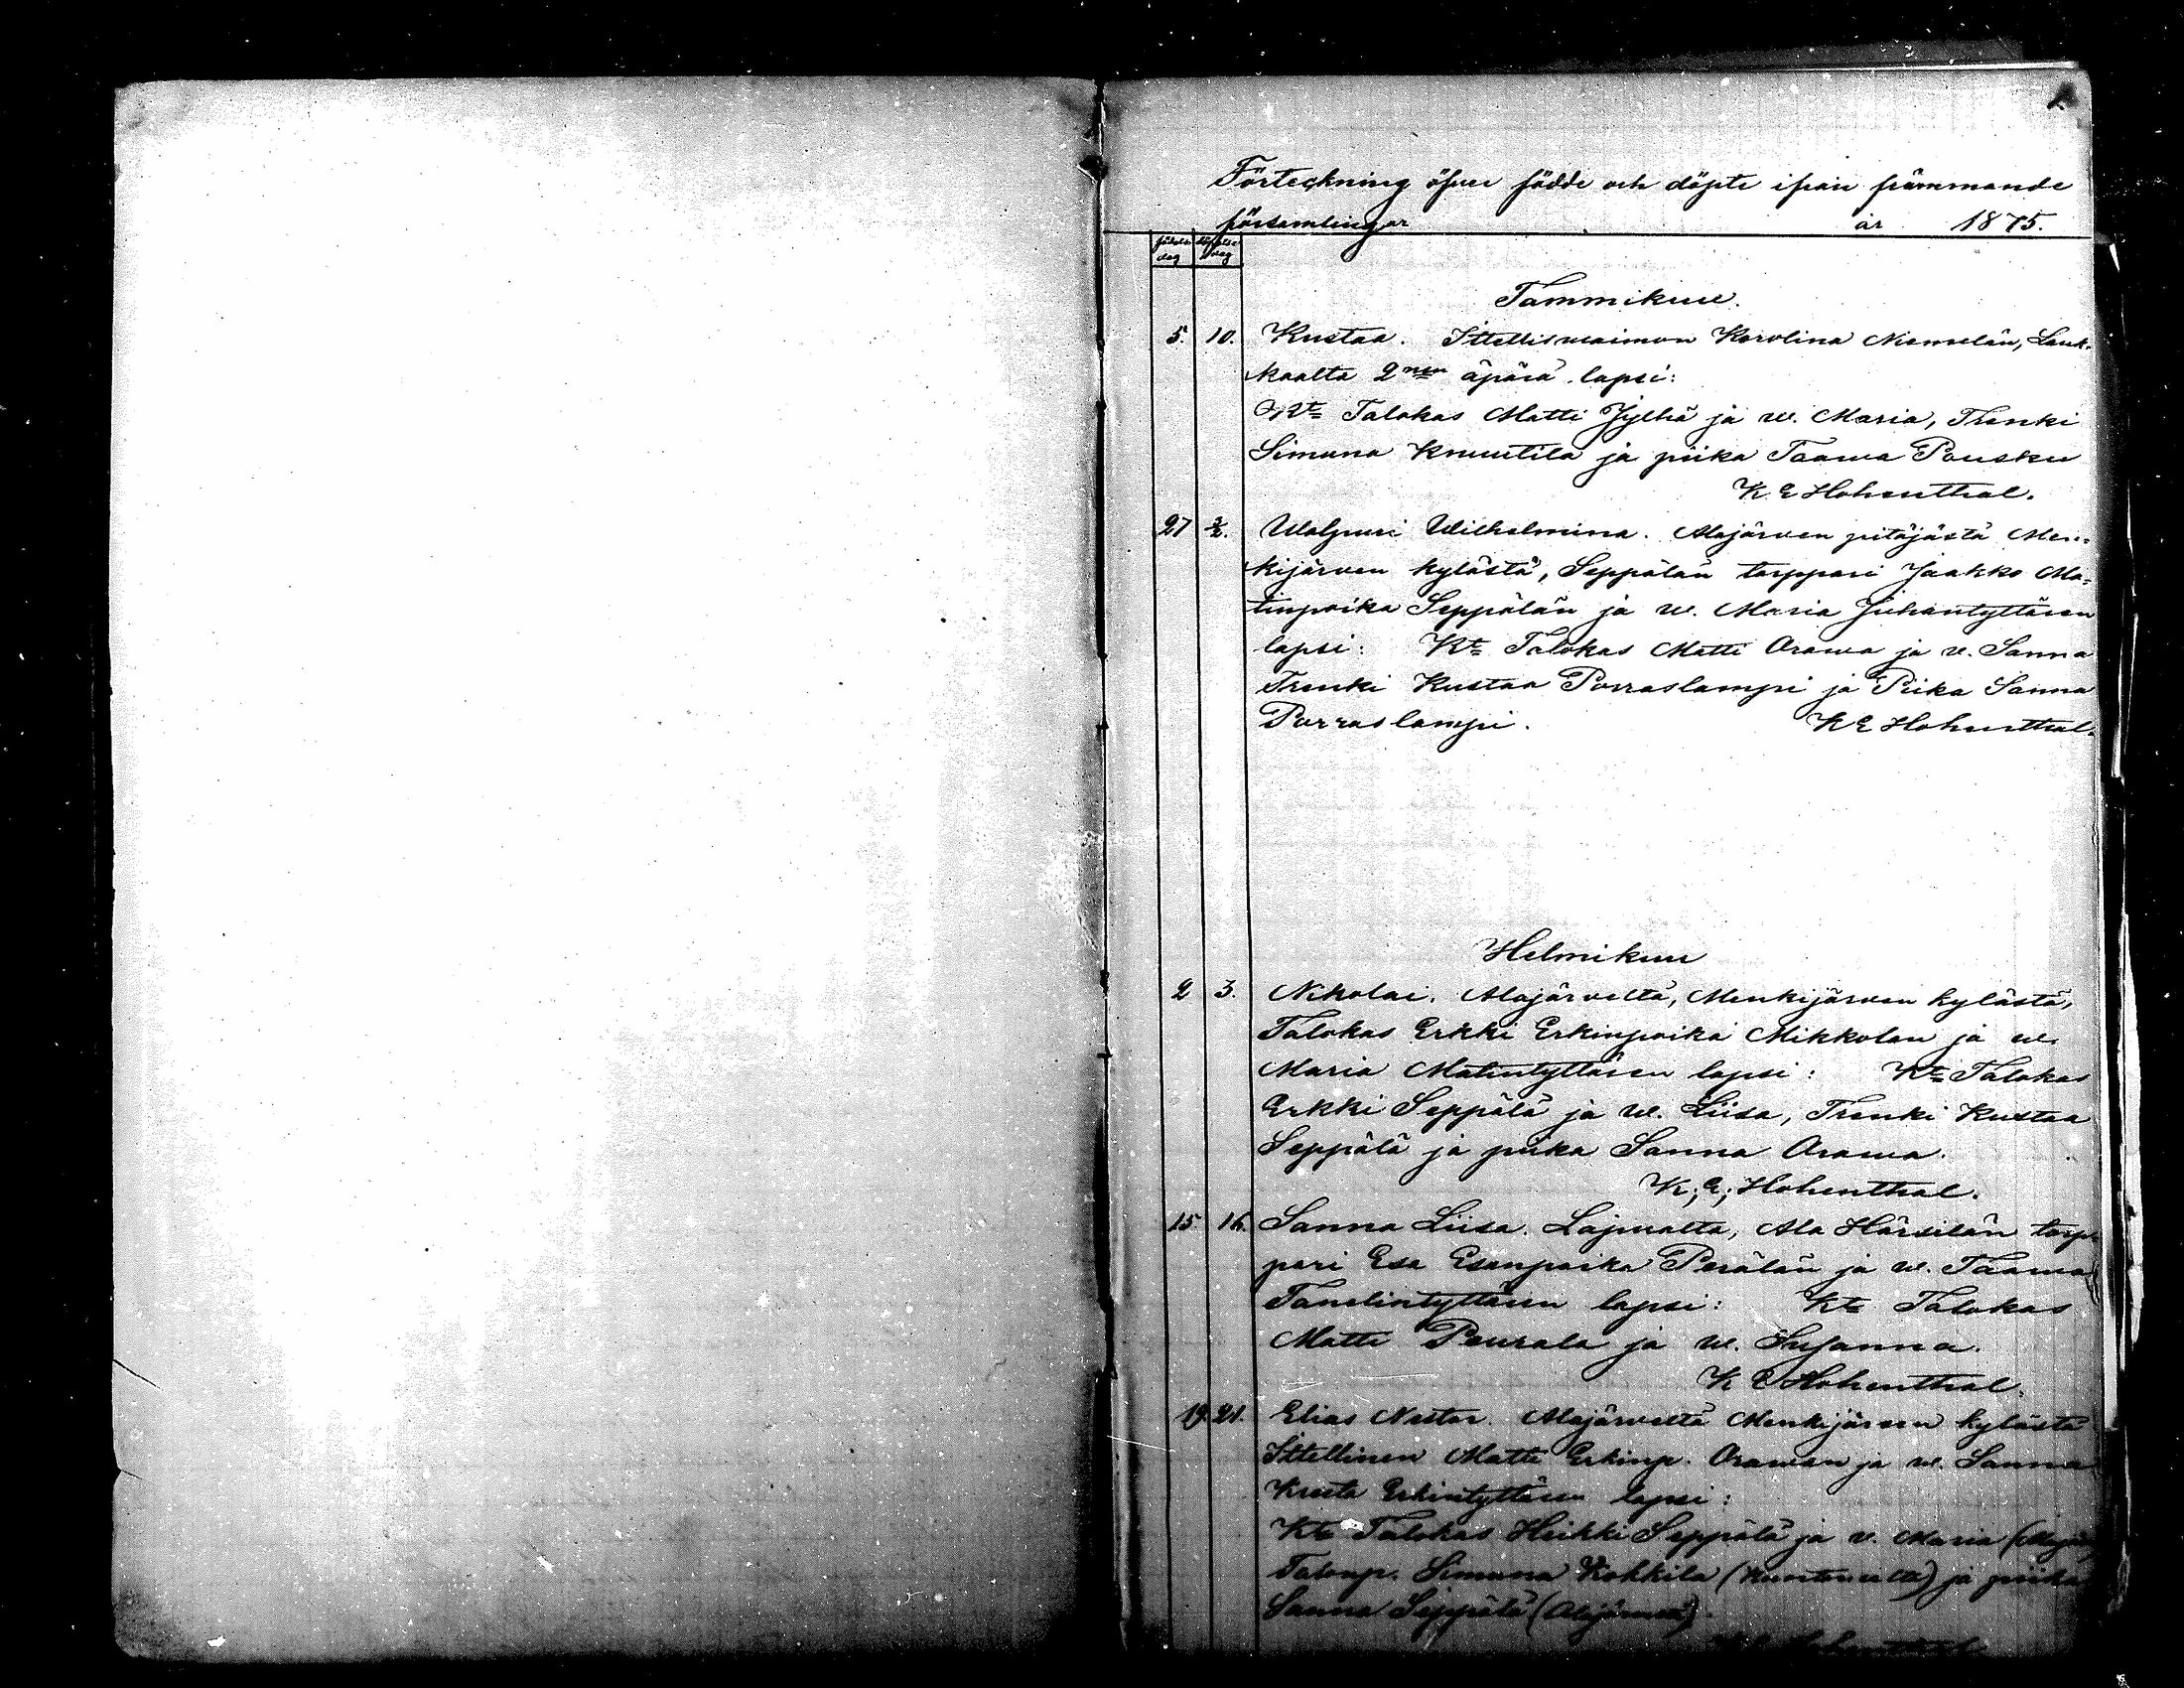 1.
Förteckning öfver födde och döpte ifrån främmande
församlingar år 1875.
födelse dag döpelse dag
Tammikuu.
5. 10. Kustaa. Ittellisvaimon Karolina Niemelän, Lauk-
kaalta 2nen äpärä lapsi:
Kt= Talokas Matti Jylhä ja w. Maria, Trenki
Simuna Knuutila ja piika Taawa Pousku
K. E Hohenthal.
27 3/2. Walpuri Wilhelmina. Alajärven pitäjästä Men-
kijärven kylästä, Seppälän torppari Jaakko Ma-
tinpoika Seppälän ja w. Maria Juhantyttären
lapsi: Kt= Talokas Matti Orawa ja v. Sanna
Trenki Kustaa Porraslampi ja Piika Sanna
Porraslampi. K E Hohenthal.
Helmikuu
2 3. Nikolai. Alajärveltä, Menkijärven kylästä,
Talokas Erkki Erkinpoika Mikkolan ja w.
Maria Matintyttären lapsi: Kt= Talokas
Erkki Seppälä ja w. Liisa, Trenki Kustaa
Seppälä ja piika Sanna Orawa.
K; E; Hohenthal.
15 16. Sanna Liisa. Lapualta, Ala Härsilän torp-
pari Esa Esanpoika Perälän ja w. Taawa
Tanelintyttären lapsi: Kt= Talokas
Matti Peurala ja w. Susanna.
K E Hohenthal.
19. 21. Elias Nestor. Alajärveltä Menkijärven kylästä
Ittellinen Matti Erkinp. Orawan ja w. Sanna
Erkintyttären lapsi:
Kt= Talokas Heikki Seppälä ja v. Maria
Talonp. Simuna Kokkila ja piika
Sanna Seppälä